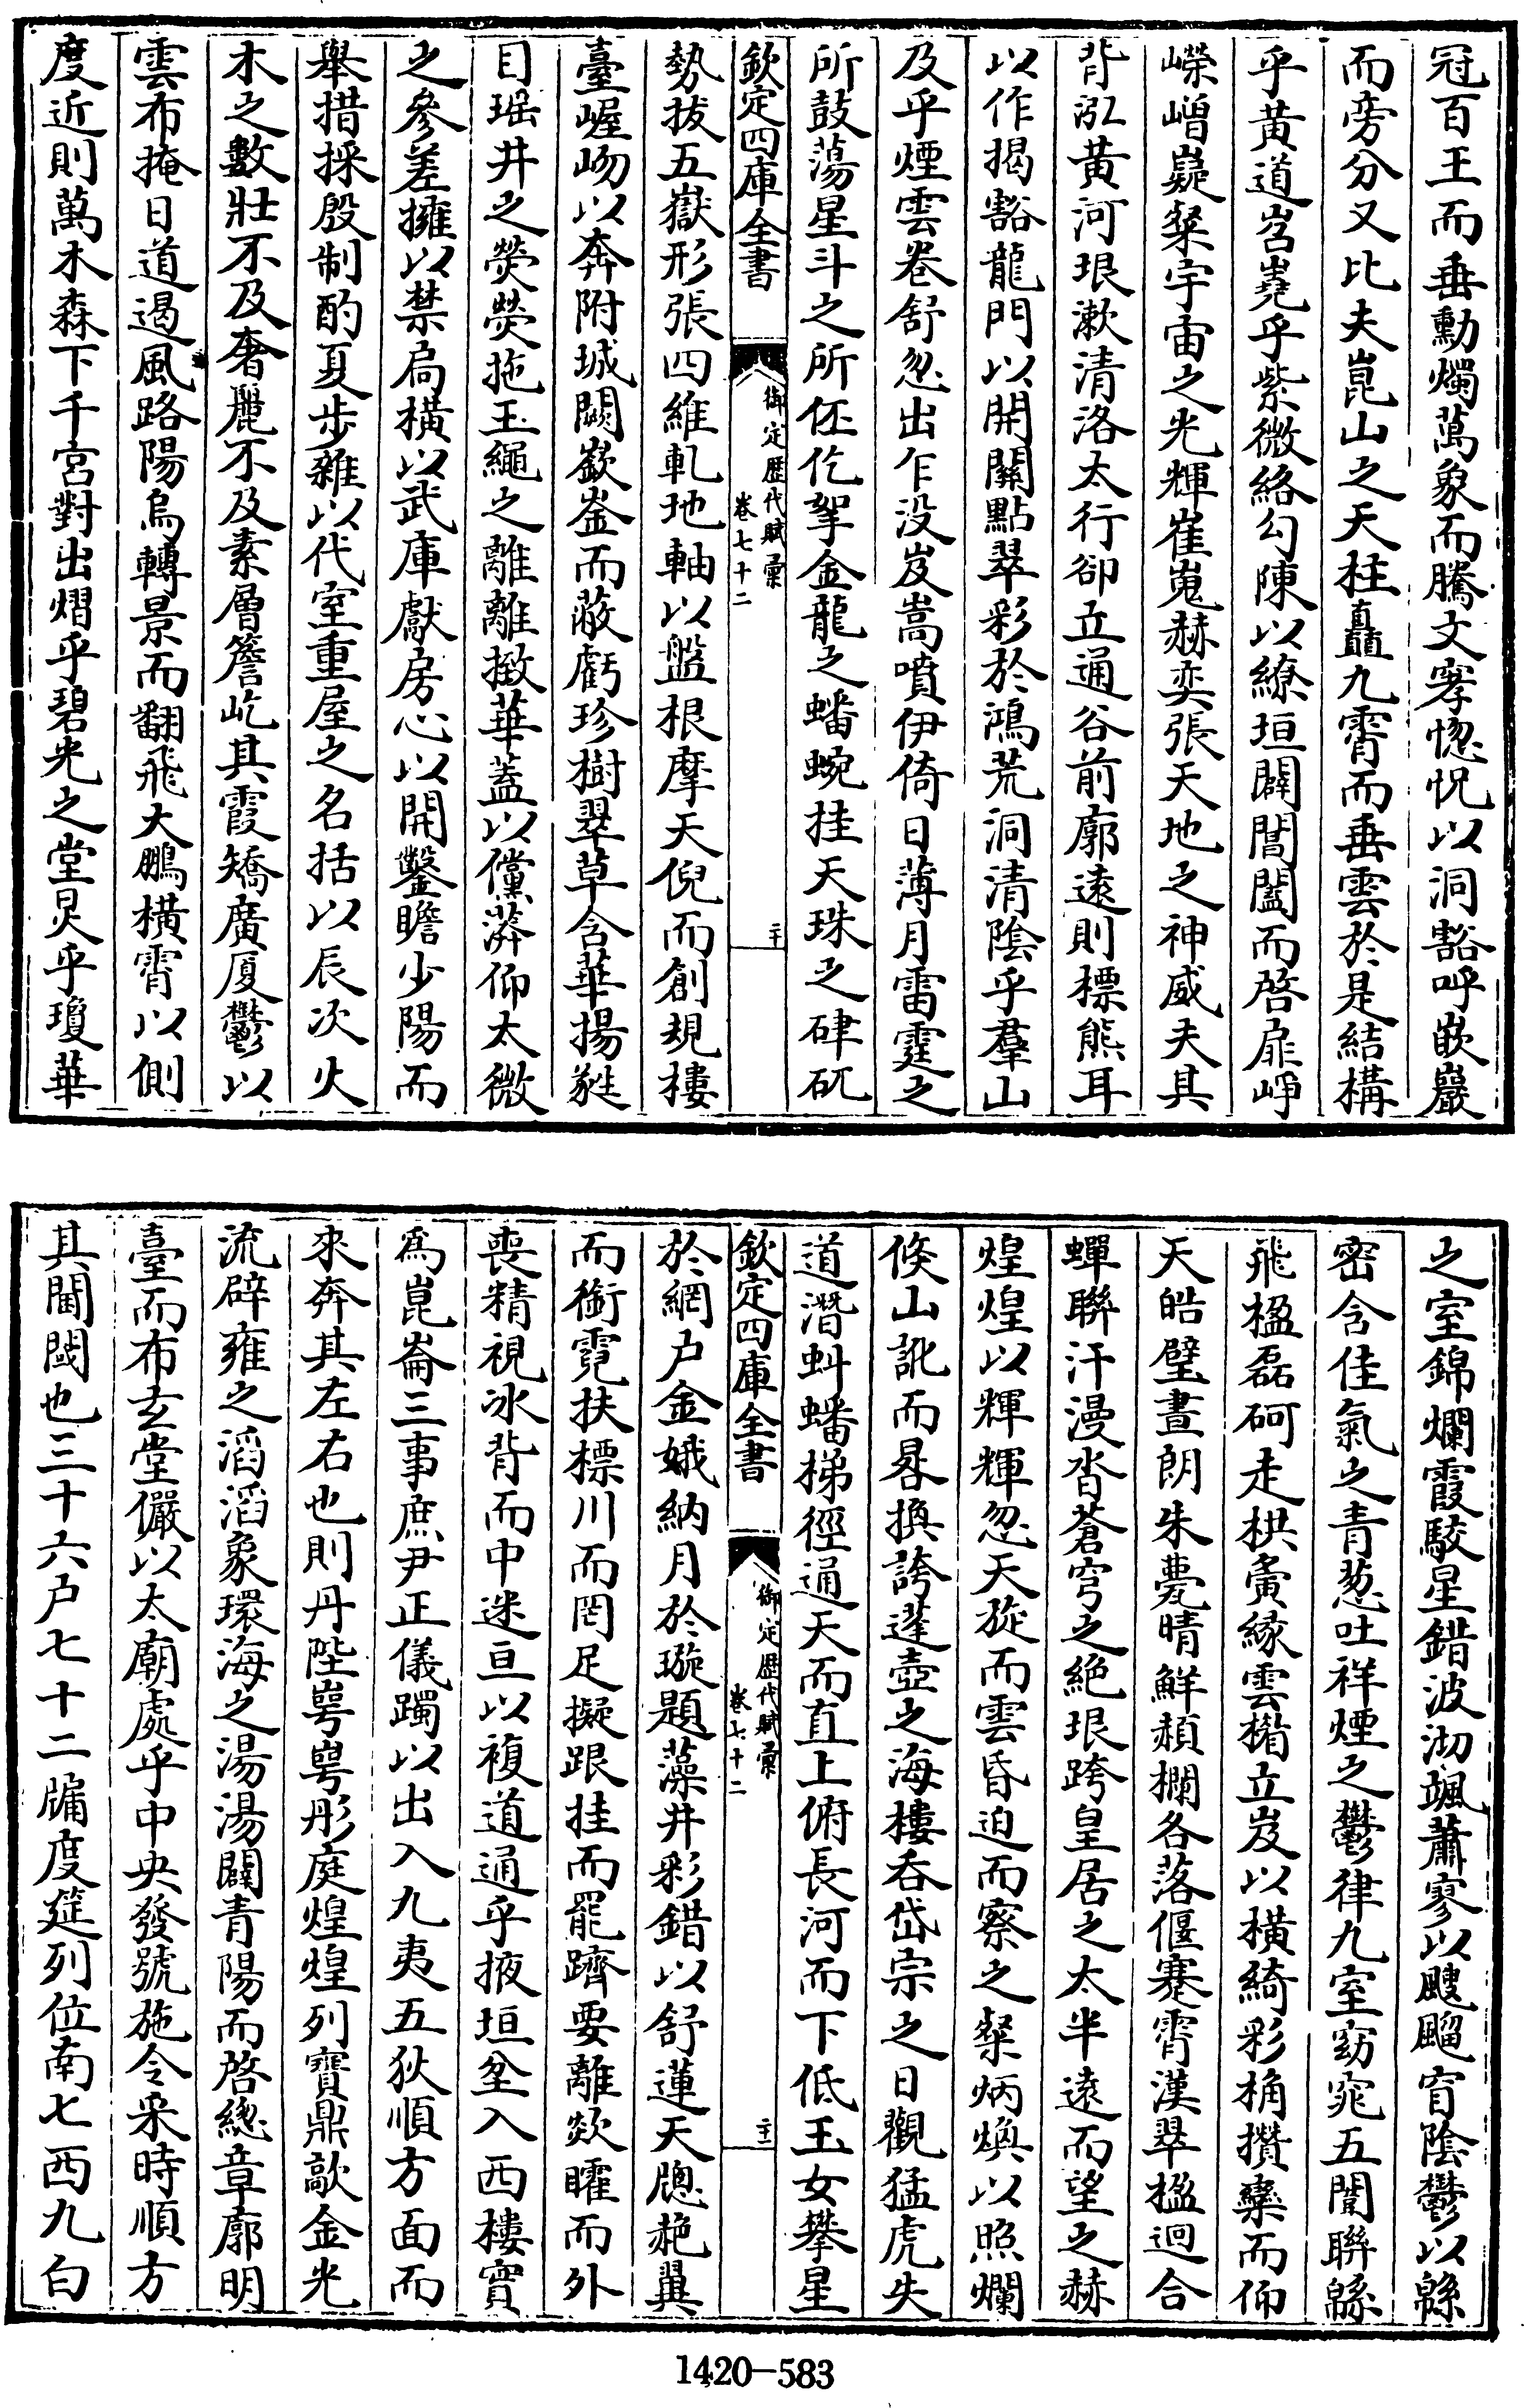 冠百王而垂勳燭萬象而騰文窙惚怳以洞豁呼嵌巖
而旁分又比夫崑山之天柱矗九霄而垂雲於是結構
乎黃道岧嶤乎紫微絡勾陳以繚垣闢閶闔而啓扉崢
嶸嶒嶷粲宇宙之光輝崔嵬赫奕張天地之神威夫其
背泓黃河垠漱清洛太行卻立通谷前廓遠則標熊耳
以作揭豁龍門以開關點翠彩於鴻荒洞清陰乎羣山
及乎煙雲卷舒忽出乍没岌嵩噴伊倚日薄月雷霆之
所鼓蕩星斗之所伾仡挐金龍之蟠蜿挂天珠之硉矹
欽定四庫全書
御定歴代賦彙
卷七十二
二十
勢拔五嶽形張四維軋地軸以盤根摩天倪而創規樓
臺崛岉以奔附城闕嶔崟而蔽虧珍樹翠草含華揚蕤
目瑶井之熒熒拖玉繩之離離撽華蓋以儻漭仰太微
之參差擁以禁扃橫以武庫獻房心以開鑿瞻少陽而
舉措採殷制酌夏步雜以代室重屋之名括以辰次火
木之數壯不及奢麗不及素層簷屹其霞矯廣厦鬱以
雲布掩日道遏風路陽烏轉景而翻飛大鵬橫霄以側
度近則萬木森下千宮對出熠乎碧光之堂炅乎瓊華
之室錦爛霞駮星錯波沏颯蕭寥以颼飀窅陰鬱以緜
密含佳氣之青葱吐祥煙之鬱律九室窈窕五闈聯緜
飛楹磊砢走栱夤緣雲楣立岌以橫綺彩桷攢欒而仰
天皓壁晝朗朱甍晴鮮赬欄各落偃蹇霄漢翠楹迥合
蟬聯汗漫沓蒼穹之絶垠跨皇居之太半遠而望之赫
煌煌以輝輝忽天旋而雲昏迫而察之粲炳煥以照爛
倏山訛而晷換誇蓬壺之海樓吞岱宗之日觀猛虎失
道潛虯蟠梯徑通天而直上俯長河而下低玉女攀星
欽定四庫全書
御定歴代賦彙
卷七十二
二十一
於網户金娥納月於璇題藻井彩錯以舒蓮天䆫赩翼
而銜霓扶標川而罔足擬跟挂而罷躋要離歘矐而外
喪精視冰背而中迷亘以複道通乎掖垣坌入西樓實
爲崑崙三事庶尹正儀躅以出入九夷五狄順方面而
來奔其左右也則丹陛崿崿彤庭煌煌列寶鼎敞金光
流辟雍之滔滔象環海之湯湯闢青陽而啓總章廓明
臺而布玄堂儼以太廟處乎中央發號施令采時順方
其閫閾也三十六户七十二牖度筵列位南七西九白
1420-583